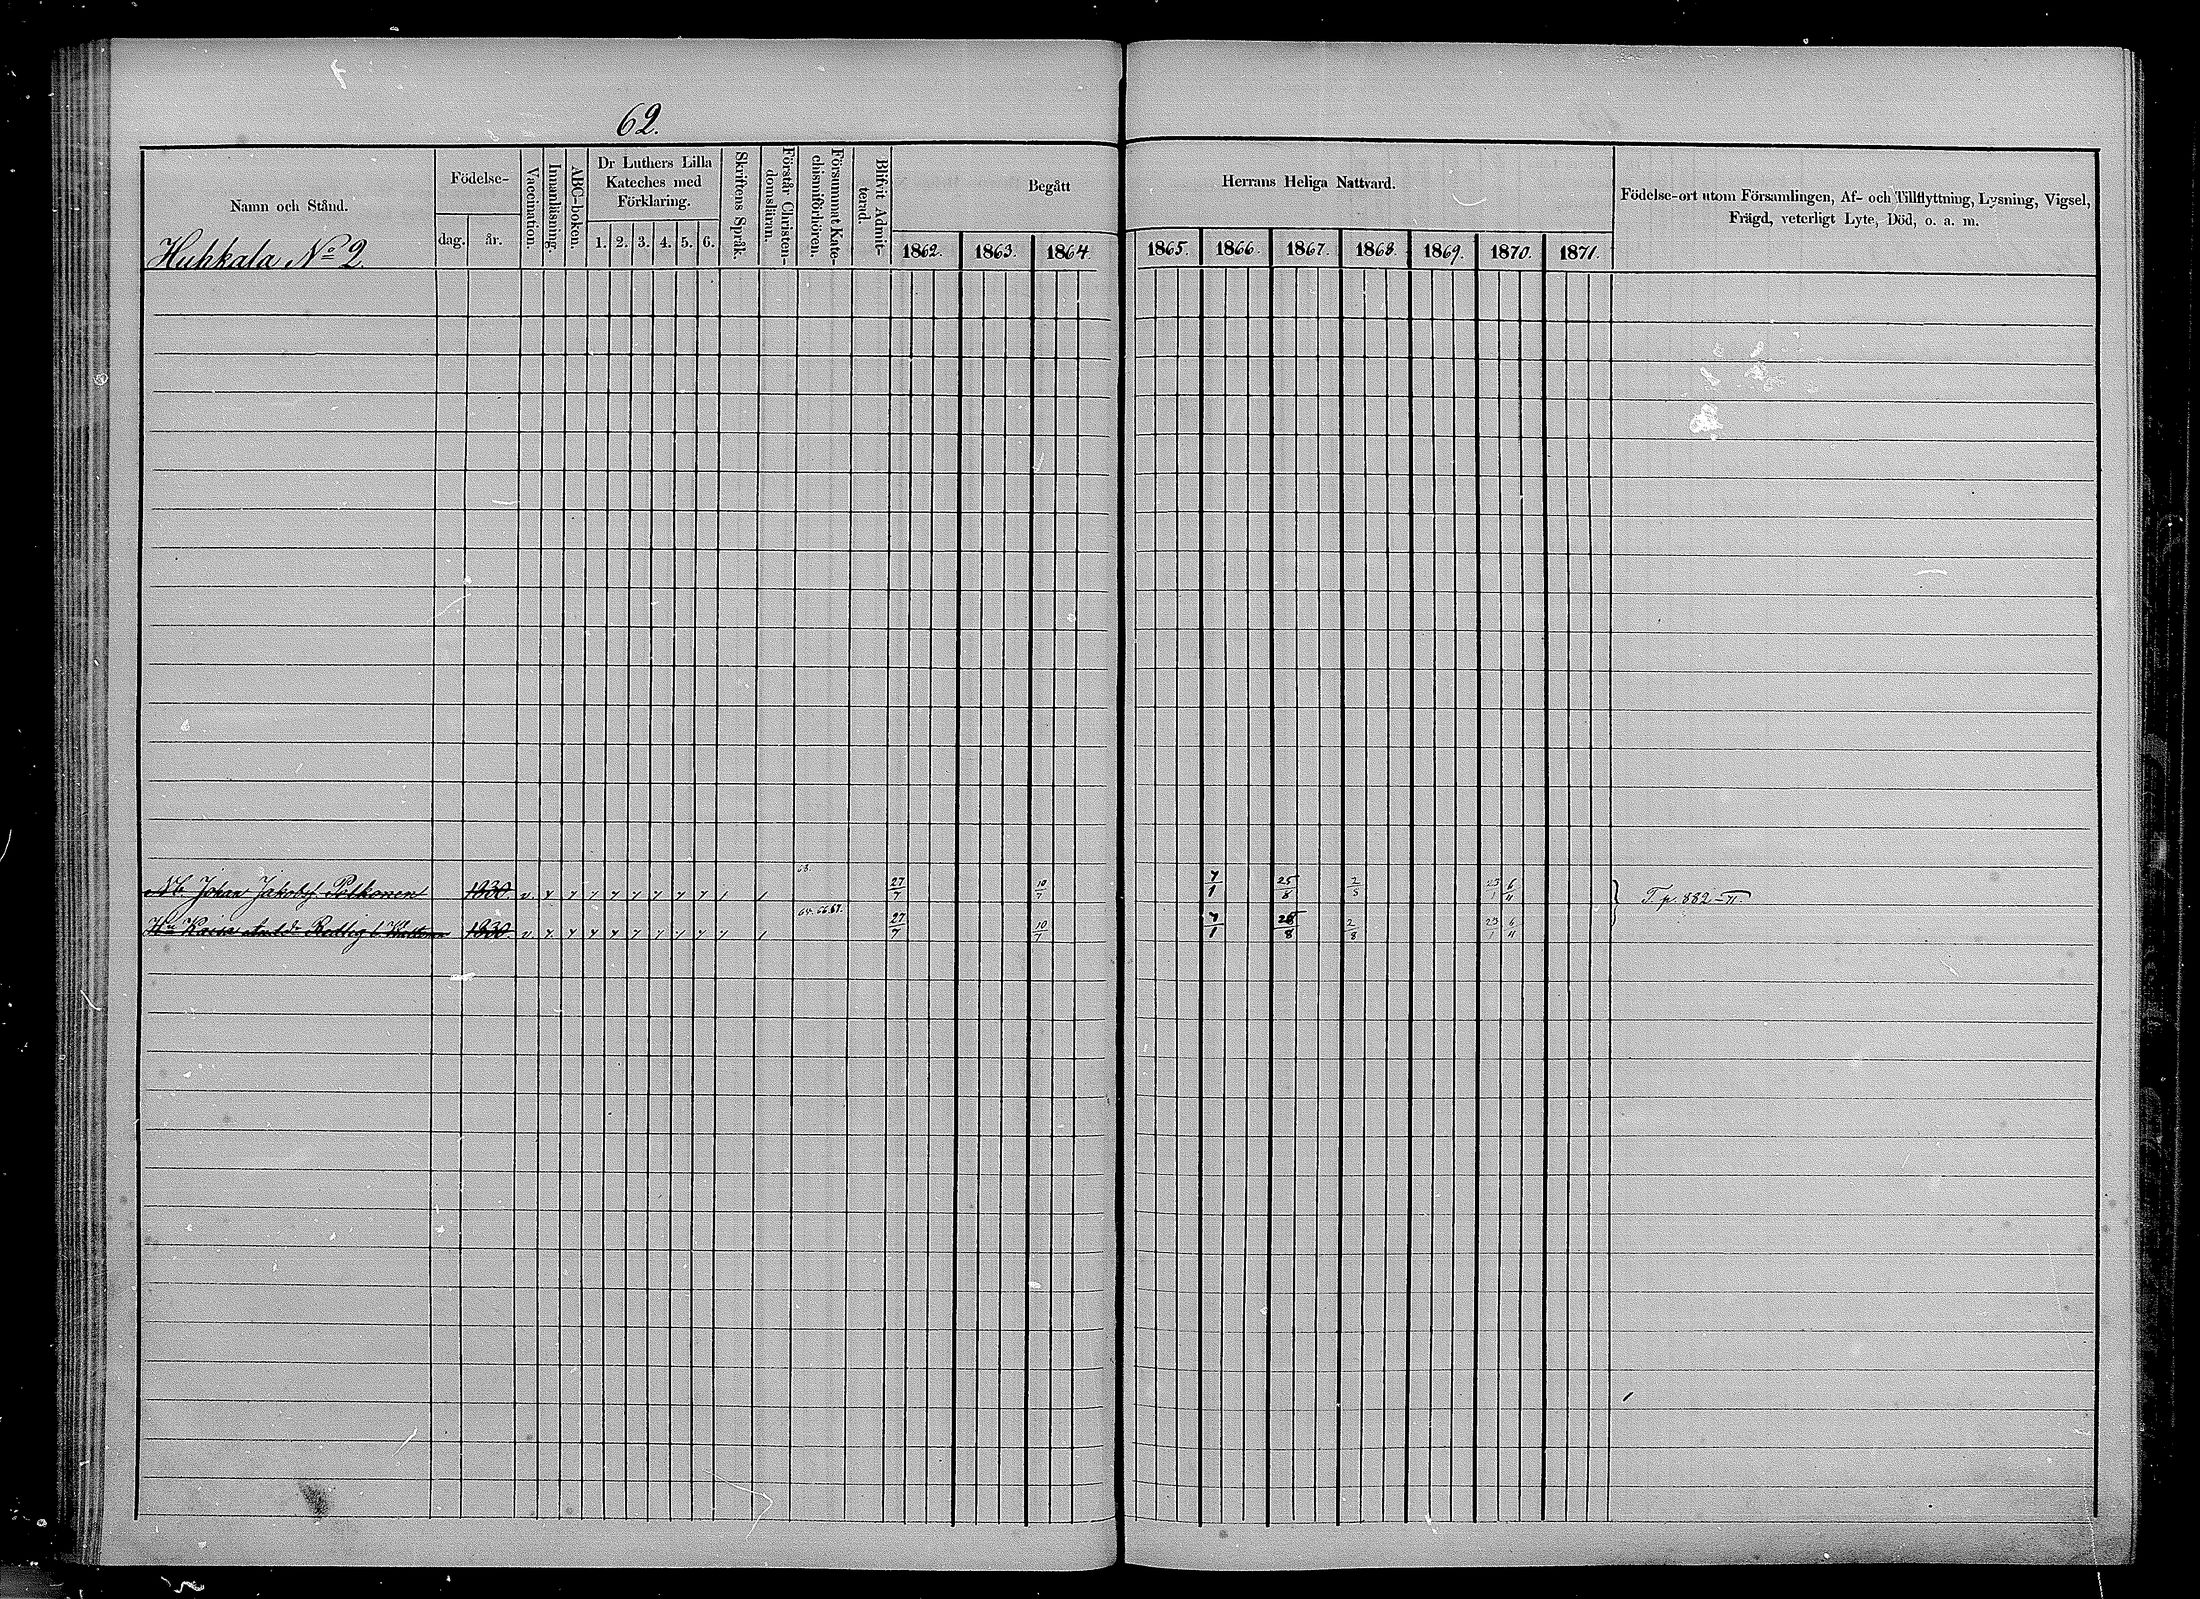 62.
Namn och Stånd.
Huhkala No 2.
Födelse-
dag. år.
Vaccination.
Innanläsning.
ABC-boken.
Dr Luthers Lilla
Kateches med
Förklaring.
1. 2. 3. 4. 5. 6.
Skriftens Språk.
Förstår Christen-
domsläran.
Försummat Kate-
chismiförhören.
Blifvit Admit-
terad.
Begått
1862. 1863. 1864.
Herrans Heliga Nattvard.
1865. 1866. 1867. 1868. 1869. 1870. 1871.
Födelse-ort utom Församlingen, Af- och Tillflyttning, Lysning, Vigsel,
Frägd, veterligt Lyte, Död, o. a. m.
Johan Jakobss. Polkonen 1830. v. 63. 27/7 10/7 7/1 25/8 2/8 23/1 6/11 T. p. 882-II.
Hu Kaisa Redlig 1830. v. 64. 66. 67. 27/7 10/7 7/1 25/8 2/8 23/1 6/11